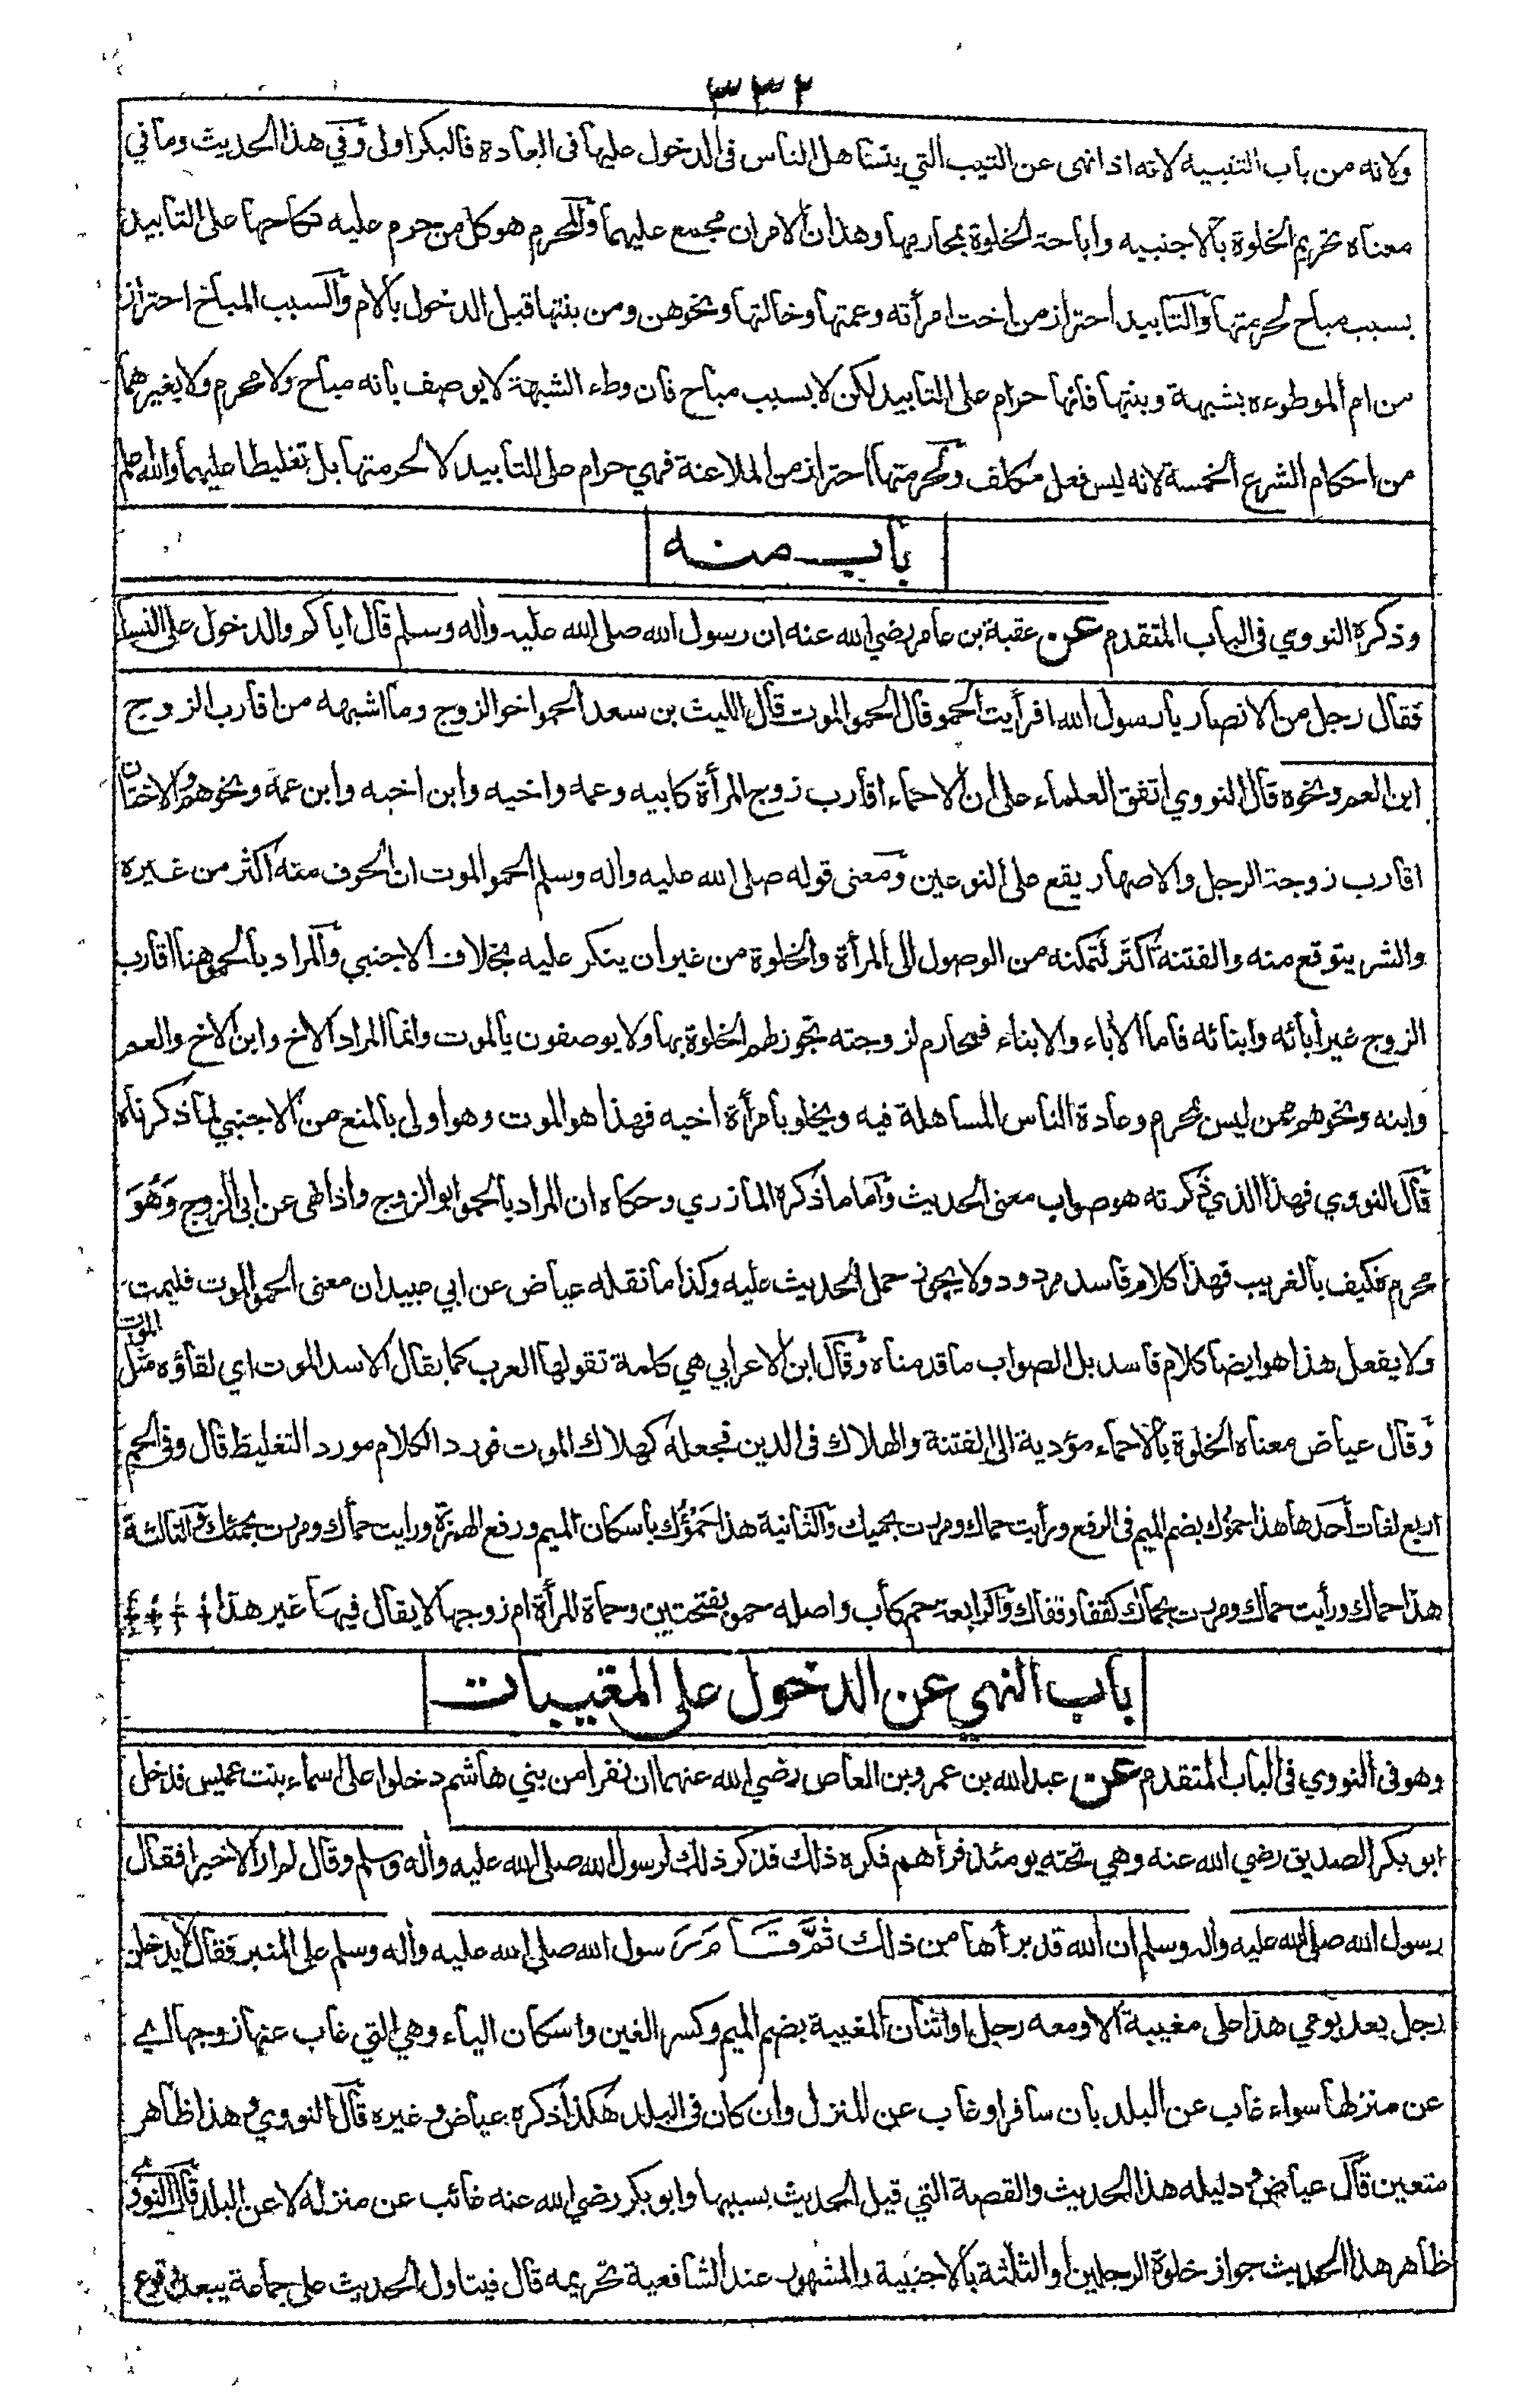 ٣٣٢
ولانه من باب التنبيه لانه اذا نهى عن الثيب التي يتساهل الناس فى الدخول عليها فى العادة فالبكر اولى وفي هذا الحديث وما في
معناه تحريم الخلوة بالاجنبيه واباحة الخلوة بمحارمها وهذان الامران مجمع عليهما والمحرم هو كل من حرم عليه نكاحها على التابيد
بسبب مباح لحرمتها والتابيد احتراز من اخت امرأته وعمتها وخالتها ونحوهن ومن بنتها قبل الدخول بالام والسبب المباح احتراز
من ام الموطوءه بشبهة وبنتها فانها حرام على التابيد لكن لا بسبب مباح فان وطء الشبهة لا يوصف بانه مباح ولا محرم ولا بغيرهما
من احكام الشرع الخمسة لانه ليس فعل مكلف ولحرمتها احتراز من الملاعنة فهي حرام على التابيد لا لحرمتها بل تغليظا عليهما والله اعلم
باب منه
وذكره النووي فى الباب المتقدم عن عقبة بن عامر رضي الله عنه ان رسول الله صلى الله عليه واله وسلم قال اياكم والدخول على النساء
فقال رجل من الانصار يا رسول الله افرأيت الحمو قال الحمو الموت قال الليث بن سعد الحمو اخو الزوج وما اشبهه من اقارب الزوج
ابن العم ونحوه قال النووي اتفق العلماء على ان الاحماء اقارب زوج المرأة كابيه وعمه واخيه وابن اخيه وابن عمه ونحوهم والاختان
اقارب زوجة الرجل والاصهار يقع على النوعين ومعنى قوله صلى الله عليه واله وسلم الحمو الموت ان الخوف منه اكثر من غيره
والشر يتوقع منه والفتنة اكثر لتمكنه من الوصول الى المرأة والخلوة من غير ان ينكر عليه بخلاف الاجنبي والمراد بالحمو هنا اقارب
الزوج غير آبائه وابنائه فاما الآباء والابناء فمحارم لزوجته تجوز لهم الخلوة بها ولا يوصفون بالموت وانما المراد الاخ وابن الاخ والعم
وابنه ونحوهم ممن ليس بمحرم وعادة الناس المساهلة فيه ويخلو بامرأة اخيه فهذا هو الموت وهو اولى بالمنع من الاجنبي لما ذكرناه
قال النووي فهذا الذي ذكرته هو صواب معنى الحديث وأما ما ذكره المازري وحكاه ان المراد بالحمو ابو الزوج واذا نهى عن ابى الزوج وهو
محرم فكيف بالغريب فهذا كلام فاسد مردود ولا يجوز حمل الحديث عليه وكذا ما نقله عياض عن ابي عبيد ان معنى الحمو الموت فليمت
ولا يفعل هذا هو ايضا كلام فاسد بل الصواب ما قدمناه وقال ابن الاعرابي هي كلمة تقولها العرب كما يقال الاسد الموت اي لقاؤه مثل الموت
وقال عياض معناه الخلوة بالاحماء مؤدية الى الفتنة والهلاك فى الدين فجعله كهلاك الموت فورد الكلام مورد التغليظ قال وفى الحم
اربع لغات أحدها هذا حموك بضم الميم فى الرفع ورأيت حماك ومررت بحميك والثانية هذا حمؤك باسكان الميم ورفع الهمزة ورايت حمأك ومررت بحمئك والثالثة
هذا حماك ورأيت حماك ومررت بحماك كقفا وقفاك والرابعة حم كأب واصله حمو بفتحتين وحماة المرأة ام زوجها لا يقال فيها غير هذا
باب النهي عن الدخول على المغيبات
وهو فى النووي فى الباب المتقدم عن عبد الله بن عمرو بن العاص رضي الله عنهما ان نفرا من بني هاشم دخلوا على اسماء بنت عميس فدخل
ابو بكر الصديق رضي الله عنه وهي تحته يومئذ فرآهم فكره ذلك فذكر ذلك لرسول الله صلى الله عليه واله وسلم وقال لم ار الا خيرا فقال
رسول الله صلى الله عليه واله وسلم ان الله قد برأها من ذلك ثم قام رسول الله صلى الله عليه واله وسلم على المنبر فقال لا يدخلن
رجل بعد يومي هذا على مغيبة الا ومعه رجل او اثنان المغيبة بضم الميم وكسر الغين واسكان الياء وهي التي غاب عنها زوجها اي
عن منزلها سواء غاب عن البلد بان سافر او غاب عن المنزل وان كان فى البلد هكذا ذكره عياض وغيره قال النووي وهذا ظاهر
متعين قال عياض ودليله هذا الحديث والقصة التي قيل الحديث بسببها وابو بكر رضي الله عنه غائب عن منزله لا عن البلد قال النووي
ظاهر هذا الحديث جواز خلوة الرجلين او الثلثة بالاجنبية والمشهور عند الشافعية تحريمه قال فيتاول الحديث على جماعة يبعد وقوع